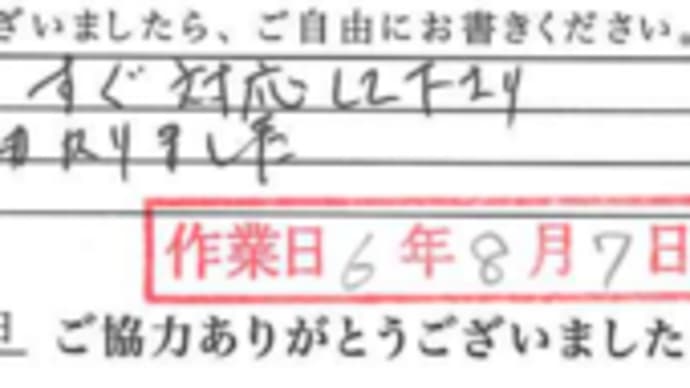 ざいましたら、ご自由にお書きください。
すぐ対応して下さり
助かりました
作業日 6年 8月 7日
ご協力ありがとうございました